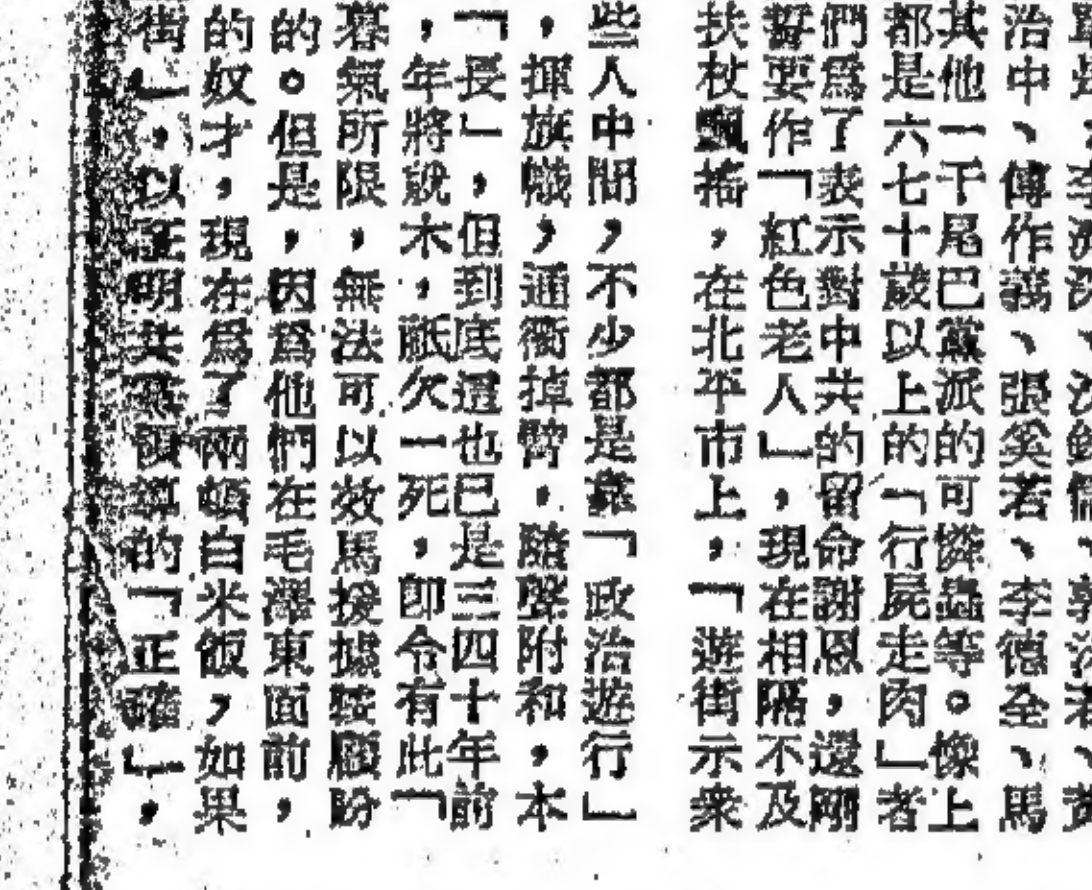 、李濟深、沈鈞儒、郭沫若、黃
治中、傅作義、張奚若、李德全、馬
其他一干尾巴黨派的可憐蟲等。像上
都是六七十歲以上的「行屍走肉」者
們爲了表示對中共的留命謝恩，還剛
誓要作「紅色老人」，現在相隔不及
扶杖飄搖，在北平市上，「遊街示衆
些人中間，不少都是靠「政治遊行」
，揮旗幟，通衢掉臂，隨聲附和，本
「長」，但到底這也已是三四十年前
，年將就木，祇欠一死，卽令有此「
暮氣所限，無法可以效馬援據鞍顧盼
的。但是，因爲他們在毛澤東面前，
的奴才，現在爲了兩頓白米飯，如果
街」，以証明共黨領導的「正確」，